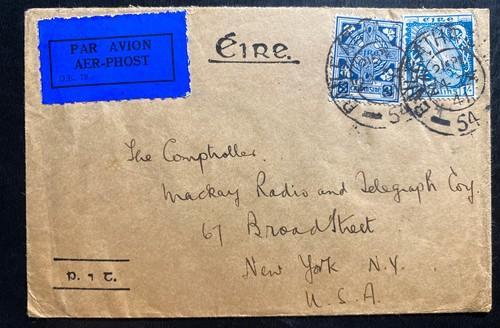 PAR AVION
AER-PHOST
Éire.
ÉIRE
54
54
The Comptroller.
Mackay Radio and Telegraph Coy.
67 Broad Street
New York N.Y.
U.S.A.